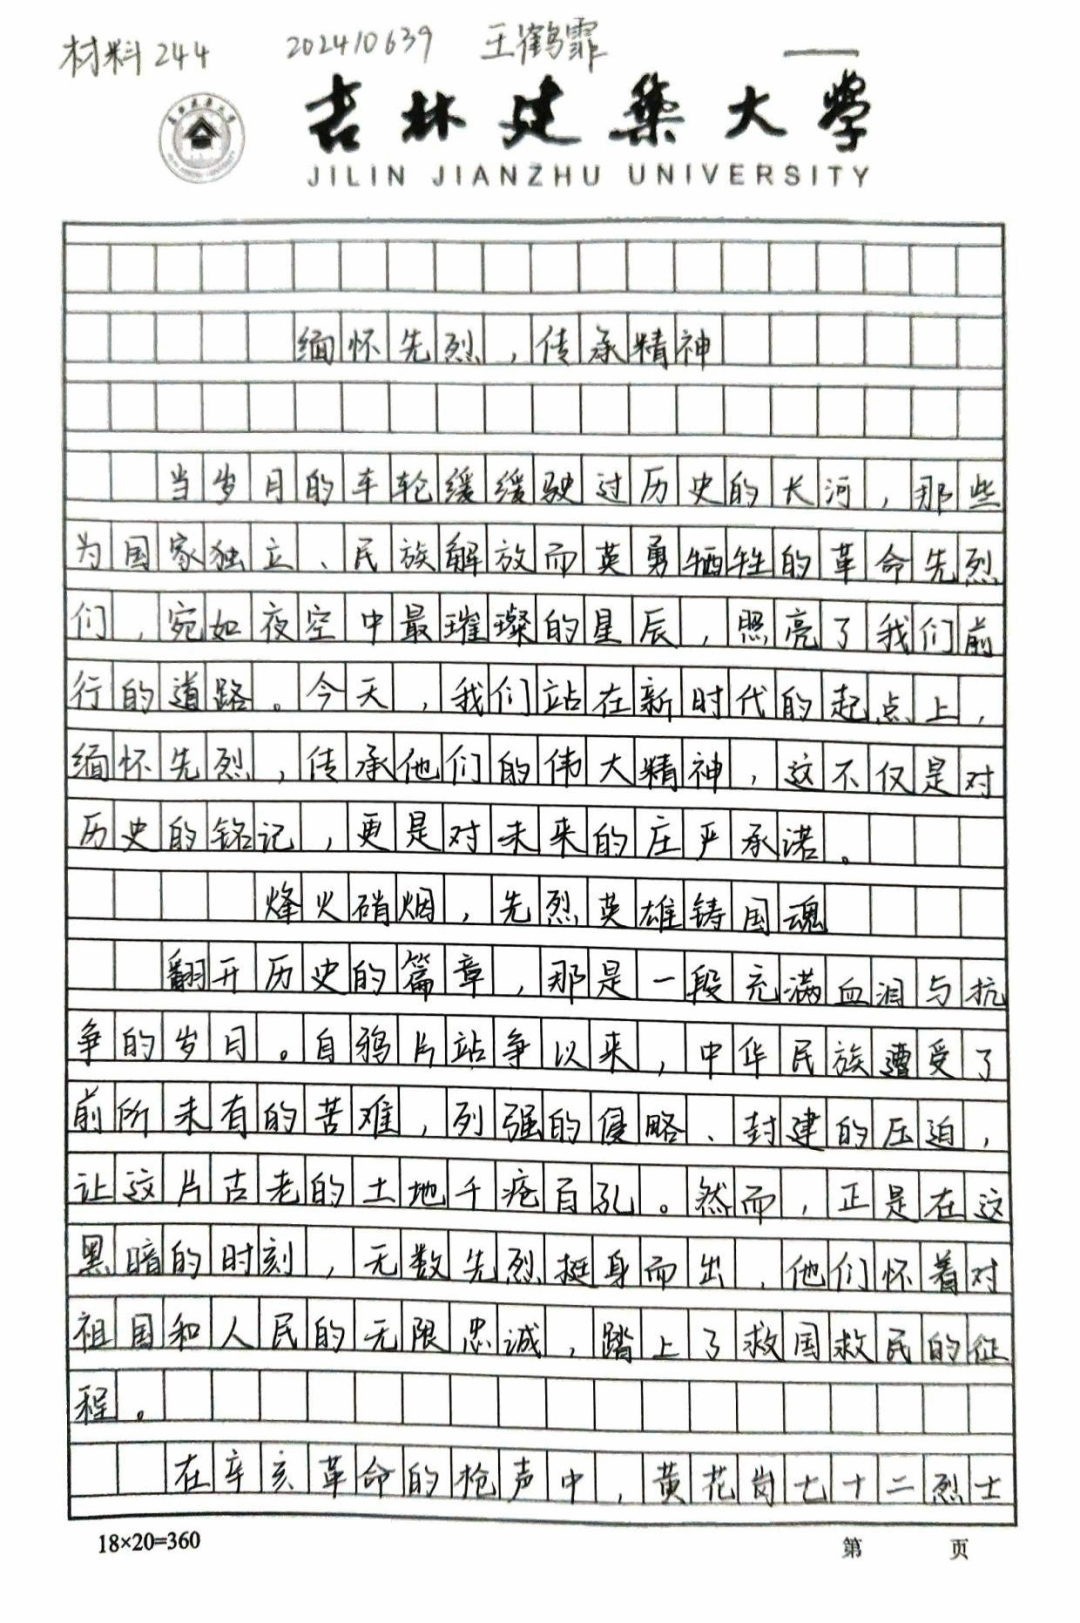 材料244 202410639 王鹤霏
吉林建筑大学
JILIN JIANZHU UNIVERSITY
缅怀先烈，传承精神
当岁月的车轮缓缓驶过历史的长河，那些
为国家独立、民族解放而英勇牺牲的革命先烈
们，宛如夜空中最璀璨的星辰，照亮了我们前
行的道路。今天，我们站在新时代的起点上，
缅怀先烈，传承他们的伟大精神，这不仅是对
历史的铭记，更是对未来的庄严承诺。
烽火硝烟，先烈英雄铸国魂
翻开历史的篇章，那是一段充满血泪与抗
争的岁月。自鸦片站争以来，中华民族遭受了
前所未有的苦难，列强的侵略、封建的压迫，
让这片古老的土地千疮百孔。然而，正是在这
黑暗的时刻，无数先烈挺身而出，他们怀着对
祖国和人民的无限忠诚，踏上了救国救民的征
程。
在辛亥革命的枪声中，黄花岗七十二烈士
18×20=360 第 页